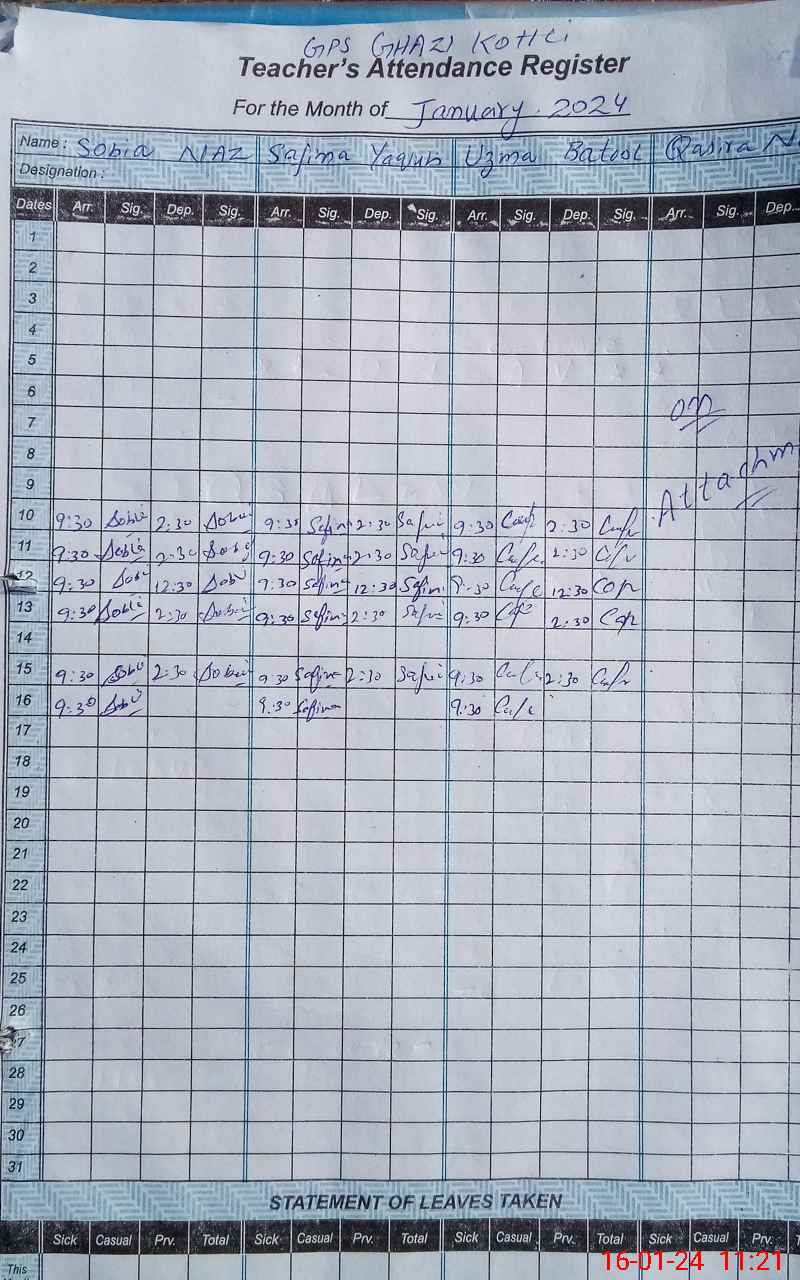 GPS GHAZI KOTLI
Teacher's Attendance Register
For the Month of January. 2024
Name : Sobia NIAZ Safina Yaqub Uzma Batool Qasira
Designation :
Dates Arr. Sig. Dep. Sig. Arr. Sig. Dep. Sig. Arr. Sig. Dep. Sig. Arr. Sig. Dep.
1
2
3
4
5
6
on
7
8
Attachm
9
10 9:30 2:30 9:30 Safina 2:30 9:30 2:30
11 9:30 Sobia 2:30 9:30 Safina 2:30 9:30 2:30
12 9:30 12:30 9:30 Safina 12:30 Safina 9:30 12:30
13 9:30 Sobia 2:30 9:30 Safina 2:30 9:30 2:30
14
15 9:30 2:30 9 30 Safina 2:30 9:30 2:30
16 9:30 9:30 Safina 9:30
17
18
19
20
21
22
23
24
25
26
27
28
29
30
31
STATEMENT OF LEAVES TAKEN
Sick Casual Prv. Total Sick Casual Prv. Total Sick Casual Prv. Total Sick Casual Prv.
This
16-01-24 11:21